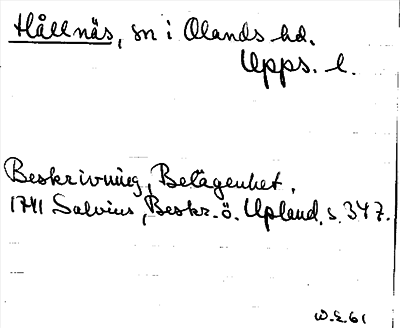 Hållnäs, sn i Olands hd.
Upps. l.
Beskrivning, Belägenhet.
1741 Salvius, Beskr. ö. Upland. s. 347.
W.E. 61